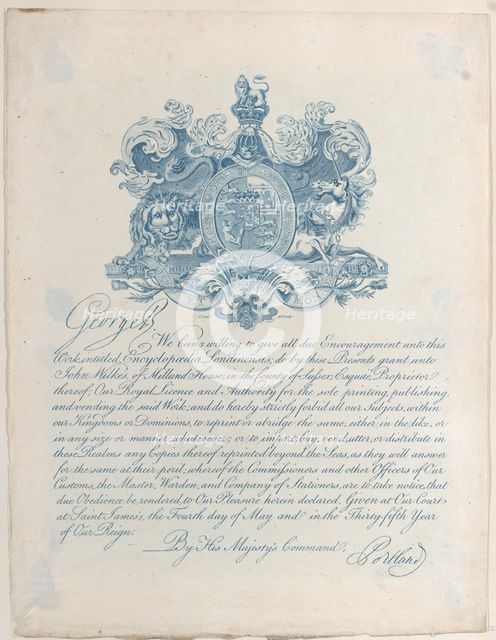 George R
We being willing to give all due Encouragement unto this
Work, intitled, Encyclopædia Londinensis, do by these Presents grant unto
John Wilkes, of Milland House, in the County of Sussex, Esquire, Proprietor
thereof, Our Royal Licence and Authority for the sole printing, publishing,
and vending the said Work; and do hereby strictly forbid all our Subjects, within
our Kingdoms or Dominions, to reprint or abridge the same, either in the like, or
in any size or manner whatsoever; or to import, buy, vend, utter, or distribute in
these Realms any Copies thereof reprinted beyond the Seas, as they will answer
for the same at their peril; whereof the Commissioners and other Officers of Our
Customs, the Master, Warden, and Company of Stationers, are to take notice, that
due Obedience be rendered to Our Pleasure herein declared. Given at Our Court
at Saint James's, the Fourth day of May and in the Thirty-fifth Year
of Our Reign.
By His Majesty's Command.
Portland